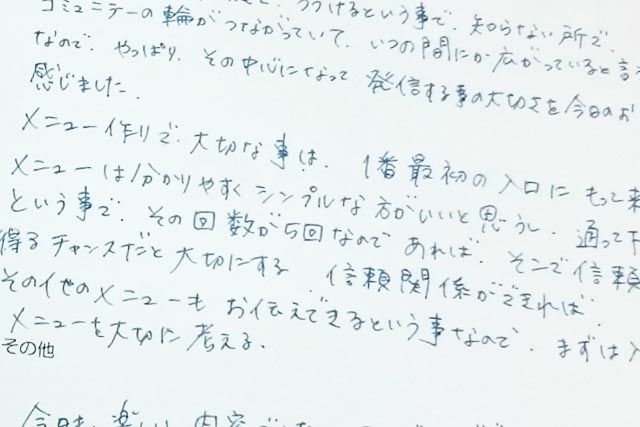 コミュニテーの輪がつながっていて、いつの間にか広がっていると言
なので、やっぱり、その中心になって発信する事の大切さを今日のお
感じました。
メニュー作りで、大切な事は、1番最初の入口にもって来
メニューは分かりやすくシンプルな方がいいと思うし、通って下
という事で、その回数が5回なのであれば、そこで信頼
得るチャンスだと大切にする、信頼関係ができれば、
その他のメニューもお伝えできるという事なので、まずは入
メニューを大切に考える。
その他
今日も楽しい内容